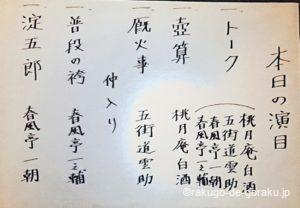 本日の演目
一 トーク
桃月庵白酒
五街道雲助
春風亭一朝
春風亭一之輔
一 壺算 桃月庵白酒
一 厩火事 五街道雲助
仲入り
一 普段の袴 春風亭一之輔
一 淀五郎 春風亭一朝
©rakugo-de-goraku.jp